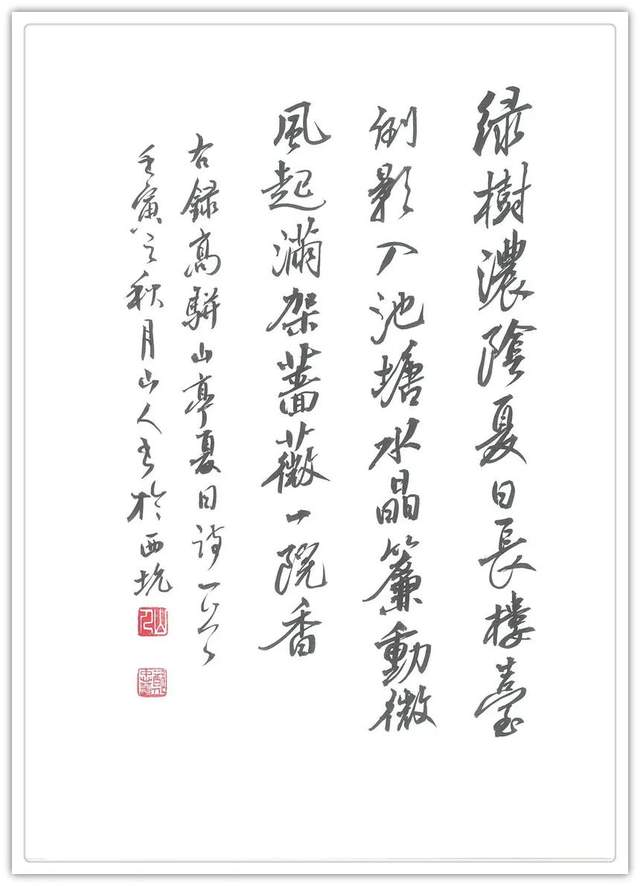 绿樹濃陰夏日長樓臺
倒影入池塘水晶簾動微
風起滿架薔薇一院香
右録高駢山亭夏日詩一首
壬寅之秋月山人書於西坑
山人